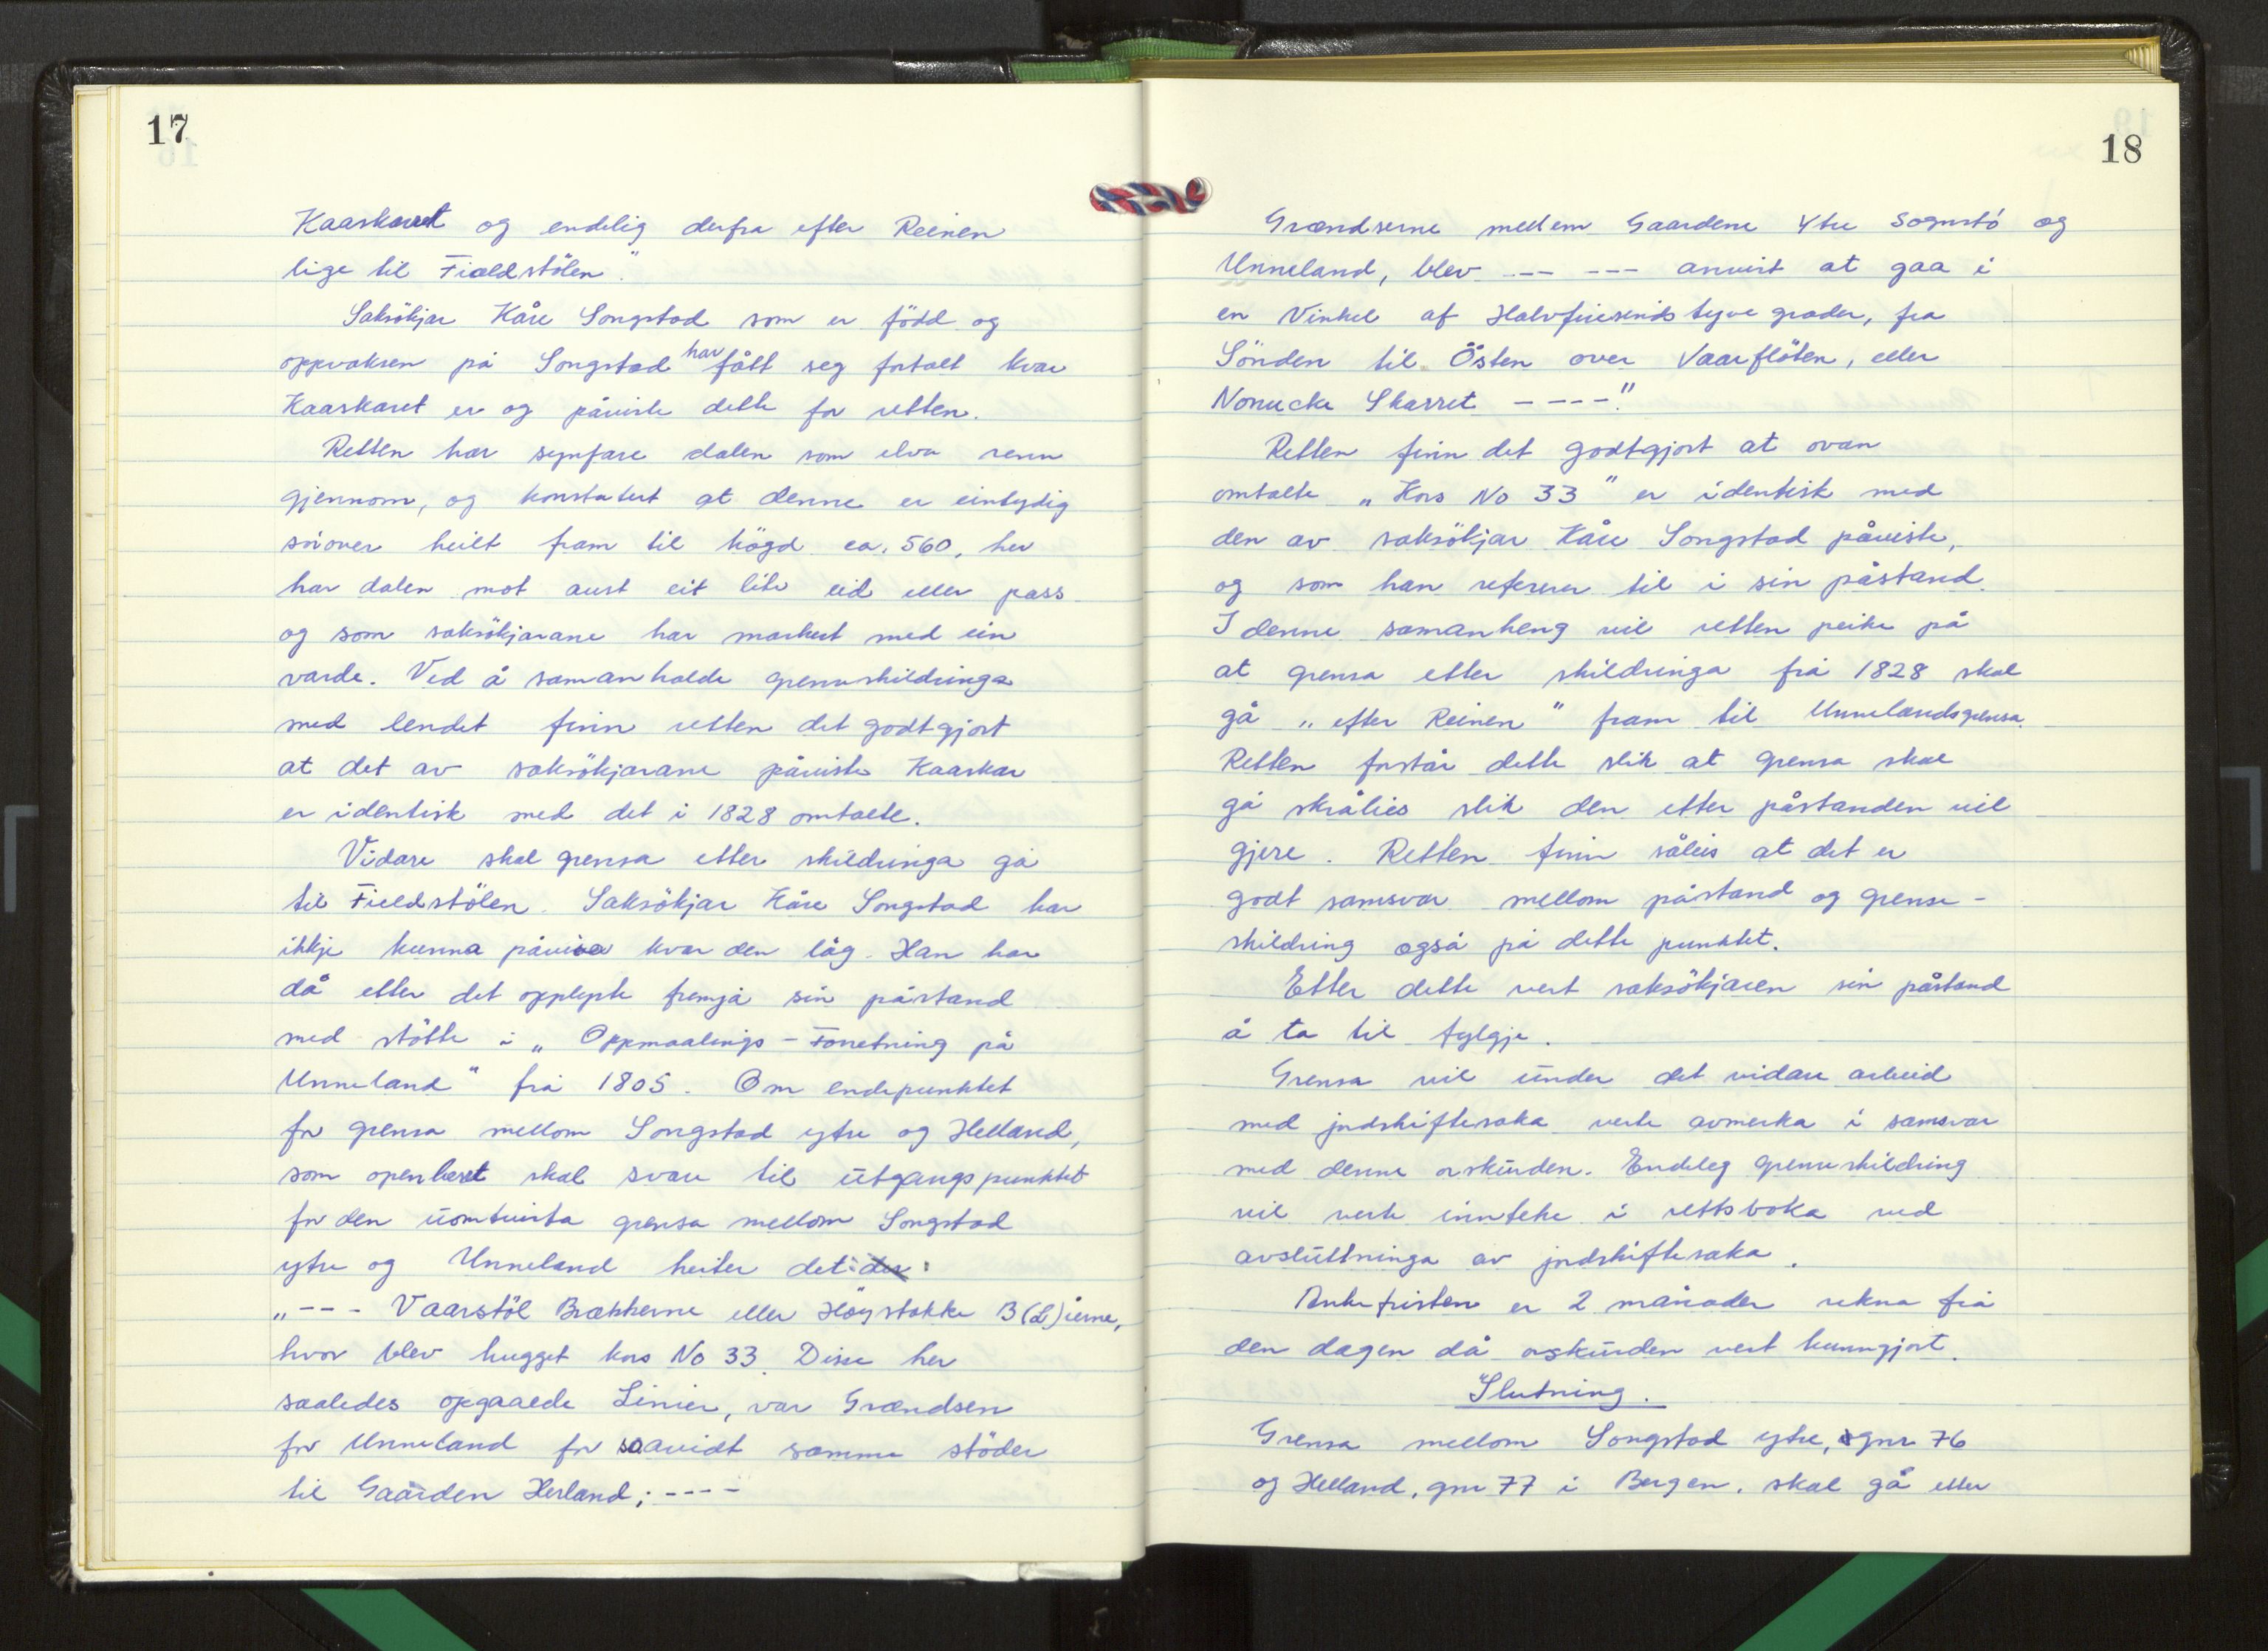 17
Kaaskaret og endelig derfra efter Reinen
lige til Fieldstölen."
Saksökjar Kåre Songstad som er född og
oppvaksen på Songstad har fått seg fortalt kvar
Kaarskaret er og påviste dette for retten.
Retten har synfare dalen som elva renn
gjennom, og konstatert at denne er eintydig
sörover heilt fram til högd ca. 560, her
har dalen mot aust eit lite eid eller pass
og som saksökjarane har markert med ein
varde. Ved å samanhalde grenseskildringa
med lendet finn retten det godtgjort
at det av saksökjarane påviste Kaarskar
er identisk med det i 1828 omtalte.
Vidare skal grensa etter skildringa gå
til Fieldstölen. Saksökjar Kåre Songstad har
ikkje kunna påvisa kvar den låg. Han har
då etter det opplyste fremja sin påstand
med stötte i „Oppmaalings-Forretning på
Unneland" frå 1805. Om endepunktet
for grensa mellom Songstad ytre og Helland,
som openbert skal svare til utgangspunktet
for den uomtvista grensa mellom Songstad
ytre og Unneland heiter det:
„--- Vaarstöl Brækkerne eller Höystakke B(L)ierne,
hvor blev hugget kors No 33. Disse her
saaledes opgaaede Linier, var Grændsen
for Unneland for saavidt samme stöder
til Gaarden Herland; ----
18
Grændserne mellem Gaardene Ytre Sognstö og
Unneland, blev --- --- anvist at gaa i
en Vinkel af Halvfiresinds tyve grader, fra
Sönden til Östen over Vaarflöten, eller
Nonucke Skarret ----."
Retten finn det godtgjort at ovan
omtalte „Kors No 33" er identisk med
den av saksökjar Kåre Songstad påviste,
og som han referer til i sin påstand.
I denne samanheng vil retten peike på
at grensa etter skildringa frå 1828 skal
gå „efter Reinen" fram til Unnelandsgrensa.
Retten forstår dette slik at grensa skal
gå skråleis slik den etter påstanden vil
gjere. Retten finn såleis at det er
godt samsvar mellom påstand og grense-
skildring også på dette punktet.
Etter dette vert saksökjaren sin påstand
å ta til fylgje.
Grensa vil under det vidare arbeid
med jordskiftesaka verte avmerka i samsvar
med denne orskurden. Endeleg grenseskildring
vil verte innteke i rettsboka ved
avsluttninga av jordskiftesaka.
Ankefristen er 2 månader rekna frå
den dagen då orskurden vert kunngjort.
Slutning.
Grensa mellom Songstad ytre, gnr 76
og Helland, gnr 77 i Bergen, skal gå etter